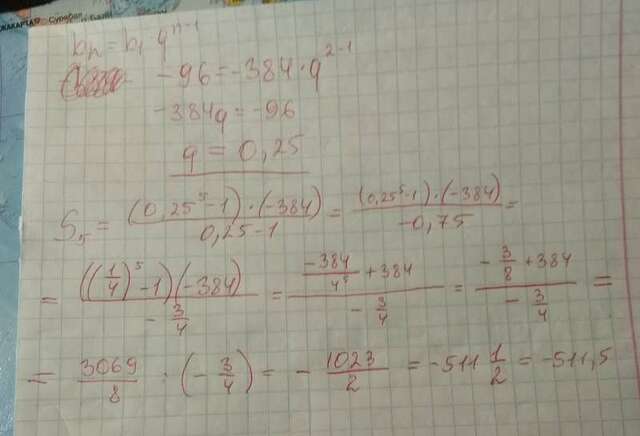 bₙ = b₁ · qⁿ⁻¹
-96 = -384 · q²⁻¹
-384q = -96
q = 0,25
S₅ = ((0,25⁵-1) · (-384))/(0,25-1) = ((0,25⁵-1) · (-384))/(-0,75) =
= (((1/4)⁵-1)(-384))/(-3/4) = (-384/4⁵ + 384)/(-3/4) = (-3/8 + 384)/(-3/4) =
= 3069/8 · (-3/4) = -1023/2 = -511 1/2 = -511,5